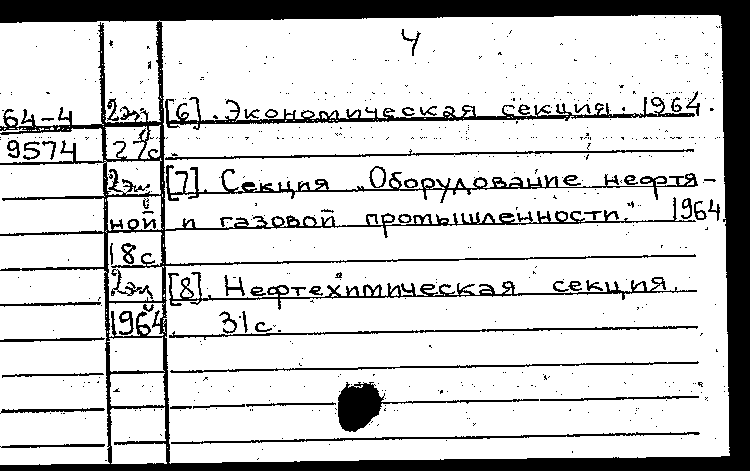 4
64-4 2 экз [6]. Экономическая секция. 1964.
9574 27с.
2 экз [7]. Секция "Оборудование нефтя-
ной и газовой промышленности." 1964
18с
2 экз [8]. Нефтехимическая секция.
1964. 31с.